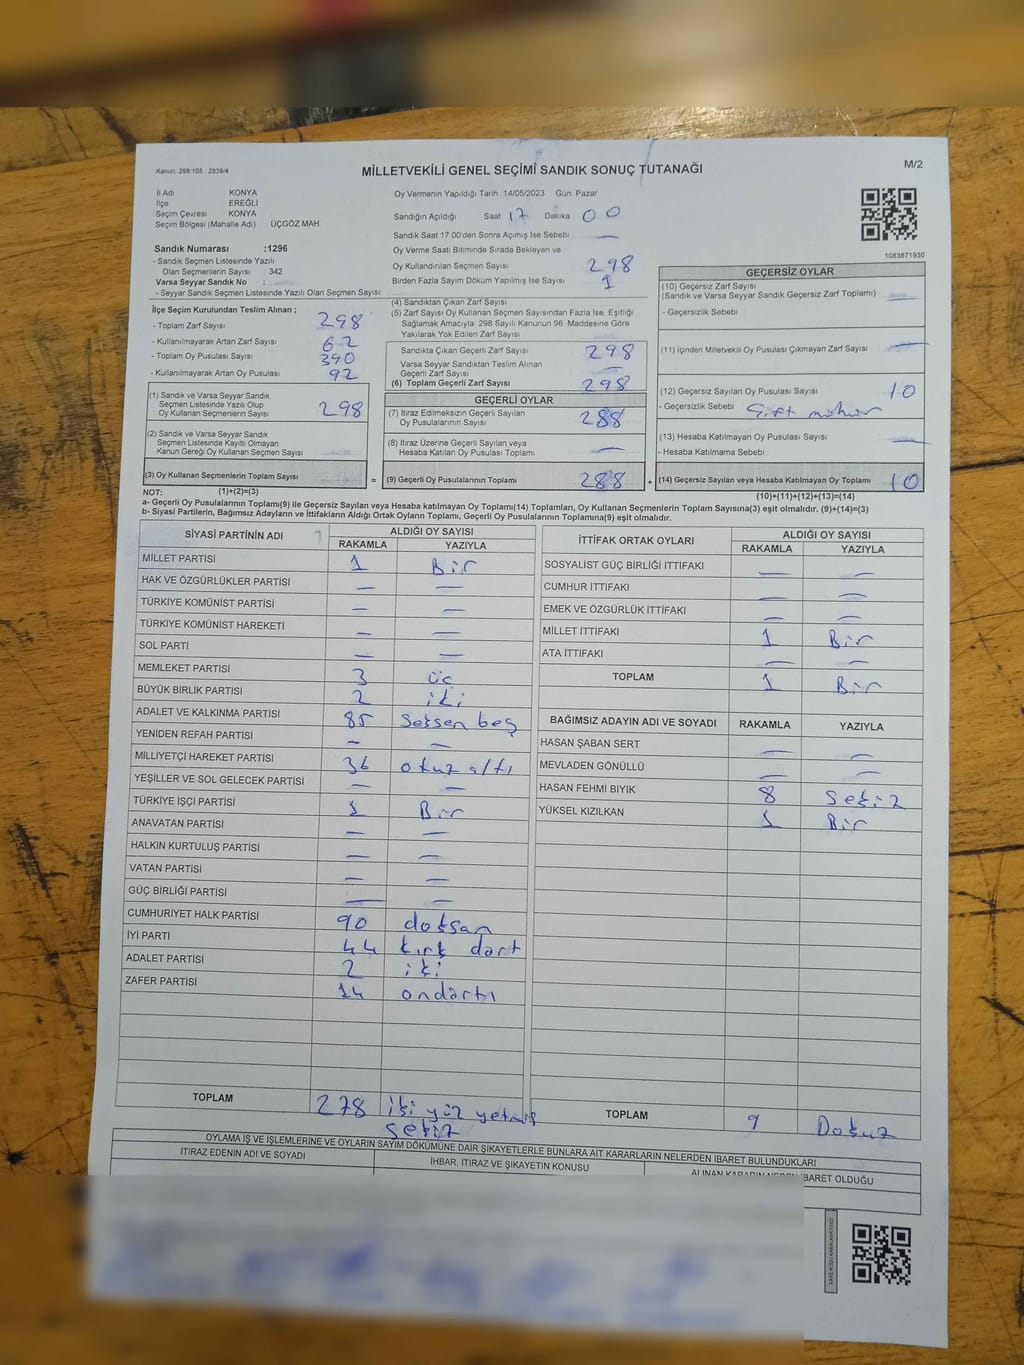 Kanun: 298/105 , 2839/4
MİLLETVEKİLİ GENEL SEÇİMİ SANDIK SONUÇ TUTANAĞI
M/2
İl Adı KONYA
İlçe EREĞLİ
Seçim Çevresi KONYA
Seçim Bölgesi (Mahalle Adı) ÜÇGÖZ MAH
Sandık Numarası :1296
- Sandık Seçmen Listesinde Yazılı
Olan Seçmenlerin Sayısı : 342
Varsa Seyyar Sandık No :
- Seyyar Sandık Seçmen Listesinde Yazılı Olan Seçmen Sayısı:
Oy Vermenin Yapıldığı Tarih :14/05/2023 Gün: Pazar
Sandığın Açıldığı Saat 17 Dakika 00
Sandık Saat 17:00'den Sonra Açımış İse Sebebi : —
Oy Verme Saati Bitiminde Sırada Bekleyen ve
Oy Kullandırılan Seçmen Sayısı 298
Birden Fazla Sayım Döküm Yapılmış İse Sayısı 1
1083871930
İlçe Seçim Kurulundan Teslim Alınan ;
- Toplam Zarf Sayısı 298
- Kullanılmayarak Artan Zarf Sayısı 62
- Toplam Oy Pusulası Sayısı 390
- Kullanılmayarak Artan Oy Pusulası 92
(1) Sandık ve Varsa Seyyar Sandık
Seçmen Listesinde Yazılı Olup
Oy Kullanan Seçmenlerin Sayısı 298
(2) Sandık ve Varsa Seyyar Sandık
Seçmen Listesinde Kayıtlı Olmayan
Kanun Gereği Oy Kullanan Seçmen Sayısı
(3) Oy Kullanan Seçmenlerin Toplam Sayısı
(1)+(2)=(3)
(4) Sandıktan Çıkan Zarf Sayısı
(5) Zarf Sayısı Oy Kullanan Seçmen Sayısından Fazla İse, Eşitliği
Sağlamak Amacıyla 298 Sayılı Kanunun 98 Maddesine Göre
Yakılarak Yok Edilen Zarf Sayısı
Sandıkta Çıkan Geçerli Zarf Sayısı 298
Varsa Seyyar Sandıktan Teslim Alınan
Geçerli Zarf Sayısı —
(6) Toplam Geçerli Zarf Sayısı 298
GEÇERLİ OYLAR
(7) İtiraz Edilmeksizin Geçerli Sayılan
Oy Pusulalarının Sayısı 288
(8) İtiraz Üzerine Geçerli Sayılan veya
Hesaba Katılan Oy Pusulası Toplamı —
= (9) Geçerli Oy Pusulalarının Toplamı 288
GEÇERSİZ OYLAR
(10) Geçersiz Zarf Sayısı
(Sandık ve Varsa Seyyar Sandık Geçersiz Zarf Toplamı) —
- Geçersizlik Sebebi
(11) İçinden Milletvekili Oy Pusulası Çıkmayan Zarf Sayısı —
(12) Geçersiz Sayılan Oy Pusulası Sayısı 10
- Geçersizlik Sebebi Çift mühür
(13) Hesaba Katılmayan Oy Pusulası Sayısı —
- Hesaba Katılmama Sebebi
+ (14) Geçersiz Sayılan veya Hesaba Katılmayan Oy Toplamı 10
(10)+(11)+(12)+(13)=(14)
NOT:
a- Geçerli Oy Pusulalarının Toplamı(9) ile Geçersiz Sayılan veya Hesaba katılmayan Oy Toplamı(14) Toplamları, Oy Kullanan Seçmenlerin Toplam Sayısına(3) eşit olmalıdır. (9)+(14)=(3)
b- Siyasi Partilerin, Bağımsız Adayların ve İttifakların Aldığı Ortak Oyların Toplamı, Geçerli Oy Pusulalarının Toplamına(9) eşit olmalıdır.
SİYASİ PARTİNİN ADI ALDIĞI OY SAYISI
RAKAMLA YAZIYLA
MİLLET PARTİSİ 1 Bir
HAK VE ÖZGÜRLÜKLER PARTİSİ — —
TÜRKİYE KOMÜNİST PARTİSİ — —
TÜRKİYE KOMÜNİST HAREKETİ — —
SOL PARTİ — —
MEMLEKET PARTİSİ 3 üç
BÜYÜK BİRLİK PARTİSİ 2 iki
ADALET VE KALKINMA PARTİSİ 85 Seksen beş
YENİDEN REFAH PARTİSİ — —
MİLLİYETÇİ HAREKET PARTİSİ 36 otuz altı
YEŞİLLER VE SOL GELECEK PARTİSİ — —
TÜRKİYE İŞÇİ PARTİSİ 1 Bir
ANAVATAN PARTİSİ — —
HALKIN KURTULUŞ PARTİSİ — —
VATAN PARTİSİ — —
GÜÇ BİRLİĞİ PARTİSİ — —
CUMHURİYET HALK PARTİSİ 90 doksan
İYİ PARTİ 44 kırk dört
ADALET PARTİSİ 2 iki
ZAFER PARTİSİ 14 ondörtı
TOPLAM 278 iki yüz yetmiş
sekiz
İTTİFAK ORTAK OYLARI ALDIĞI OY SAYISI
RAKAMLA YAZIYLA
SOSYALİST GÜÇ BİRLİĞİ İTTİFAKI — —
CUMHUR İTTİFAKI — —
EMEK VE ÖZGÜRLÜK İTTİFAKI — —
MİLLET İTTİFAKI 1 Bir
ATA İTTİFAKI — —
TOPLAM 1 Bir
BAĞIMSIZ ADAYIN ADI VE SOYADI RAKAMLA YAZIYLA
HASAN ŞABAN SERT — —
MEVLADEN GÖNÜLLÜ — —
HASAN FEHMİ BIYIK 8 Sekiz
YÜKSEL KIZILKAN 1 Bir
TOPLAM 9 Dokuz
OYLAMA İŞ VE İŞLEMLERİNE VE OYLARIN SAYIM DÖKÜMÜNE DAİR ŞİKAYETLERLE BUNLARA AİT KARARLARIN NELERDEN İBARET BULUNDUKLARI
İTİRAZ EDENİN ADI VE SOYADI İHBAR, İTİRAZ VE ŞİKAYETİN KONUSU ALINAN KARARIN NEDEN İBARET OLDUĞU